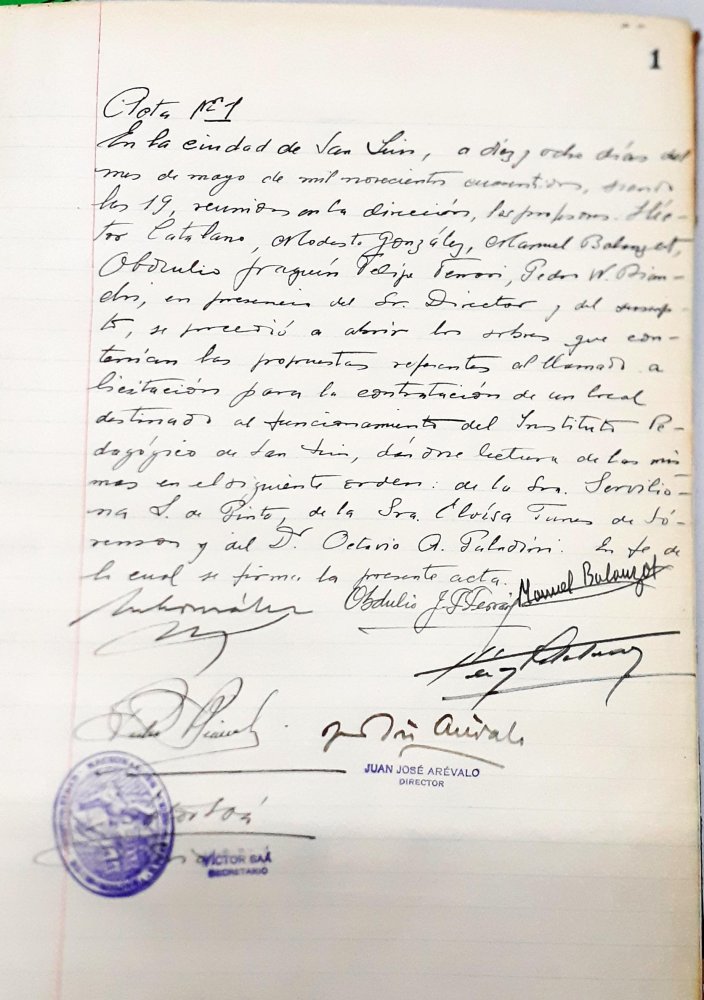 1
Acta Nº 1
En la ciudad de San Luis, a diez y ocho días del
mes de mayo de mil novecientos cuarentidos, siendo
las 19, reunidos en la dirección, los profesores Héc-
tor Catalano, Modesto González, Manuel Balanzat,
Obdulio Joaquín Felipe Ferrari, Pedro W. Bian-
chi, en presencia del Sr. Director y del suscrip-
to, se procedió a abrir los sobres que con-
tenían las propuestas referentes al llamado a
licitación para la contratación de un local
destinado al funcionamiento del Instituto Pe-
dagógico de San Luis, dándose lectura de las mis-
mas en el siguiente orden: de la Sra. Servilio-
na L. de Pinto, de la Sra. Eloísa Funes de Só-
renson y del Dr. Octavio A. Paladini. En fe de
la cual se firma la presente acta.
Obdulio J. F. Ferrari Manuel Balanzat
Juan José Arévalo
JUAN JOSÉ ARÉVALO
DIRECTOR
VÍCTOR SAÁ
SECRETARIO